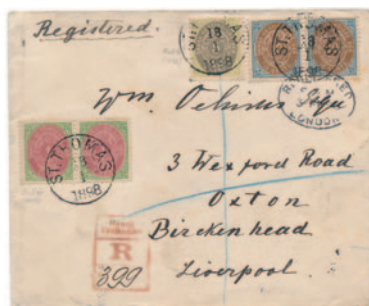 Registered.
ST. THOMAS
13
1
1898
ST. THOMAS
1
1898
REGISTERED
LONDON
Wm. Esqre
3 Wexford Road
Oxton
Birckenhead
Liverpool.
ST. THOMAS
13
1
1898
R
399